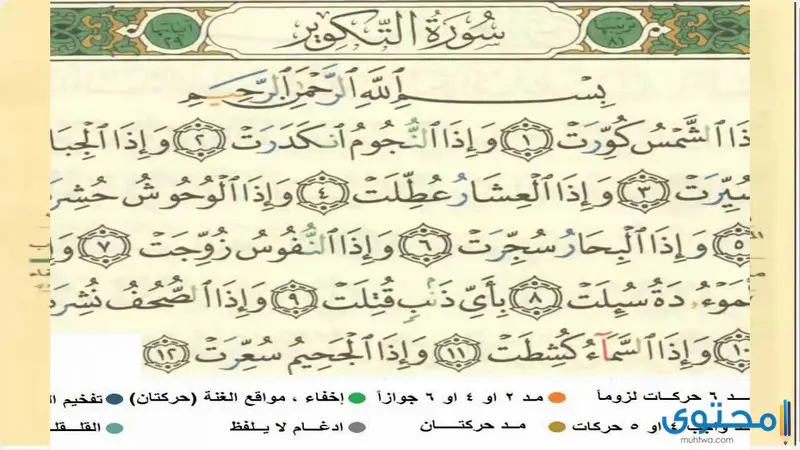 سُورَةُ التَّكْوِيرِ
بِسْمِ ٱللَّهِ ٱلرَّحْمَٰنِ ٱلرَّحِيمِ
ذَا ٱلشَّمْسُ كُوِّرَتْ ١ وَإِذَا ٱلنُّجُومُ ٱنكَدَرَتْ ٢ وَإِذَا ٱلْجِبَا
سُيِّرَتْ ٣ وَإِذَا ٱلْعِشَارُ عُطِّلَتْ ٤ وَإِذَا ٱلْوُحُوشُ حُشِرَ
٥ وَإِذَا ٱلْبِحَارُ سُجِّرَتْ ٦ وَإِذَا ٱلنُّفُوسُ زُوِّجَتْ ٧ وَإِ
ٱلْمَوْءُۥدَةُ سُئِلَتْ ٨ بِأَيِّ ذَنۢبٍ قُتِلَتْ ٩ وَإِذَا ٱلصُّحُفُ نُشِرَ
١٠ وَإِذَا ٱلسَّمَآءُ كُشِطَتْ ١١ وَإِذَا ٱلْجَحِيمُ سُعِّرَتْ ١٢
ـد ٦ حركات لزوماً مد ٢ او ٤ او ٦ جوازاً إخفاء ، مواقع الغنة (حركتان) تفخيم ا
او ٥ حركات مد حركتـــان ادغام لا يلفظ القلقلـ
محتوى
muhtwa.com